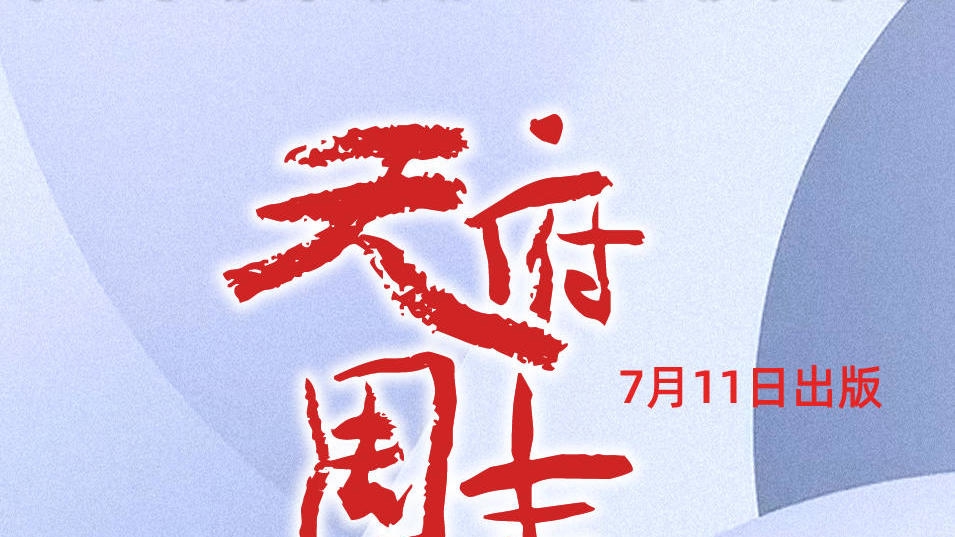 天府
周末
7月11日出版